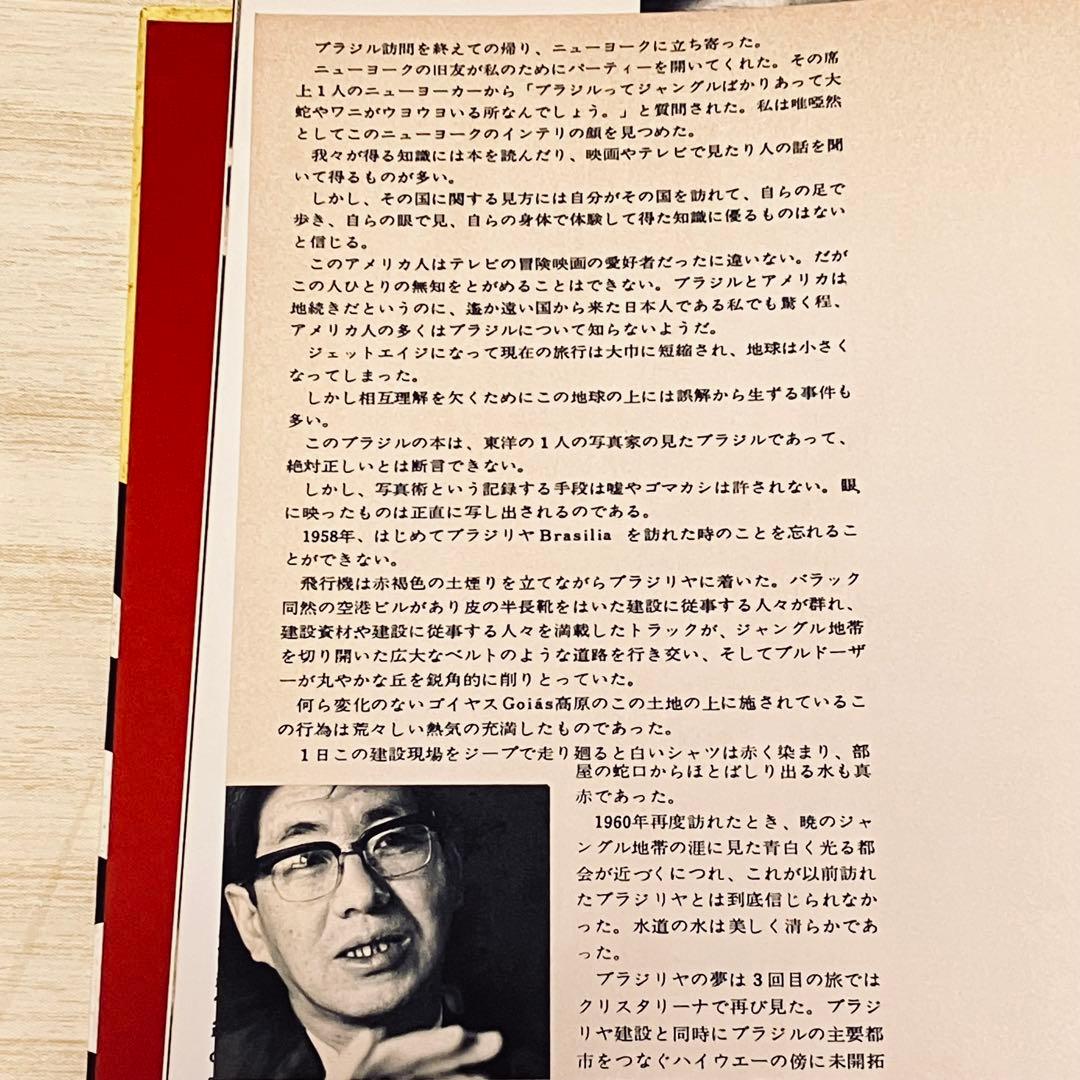 ブラジル訪問を終えての帰り、ニューヨークに立ち寄った。
ニューヨークの旧友が私のためにパーティーを開いてくれた。その席
上1人のニューヨーカーから「ブラジルってジャングルばかりあって大
蛇やワニがウヨウヨいる所なんでしょう。」と質問された。私は唯啞然
としてこのニューヨークのインテリの顔を見つめた。
我々が得る知識には本を読んだり、映画やテレビで見たり人の話を聞
いて得るものが多い。
しかし、その国に関する見方には自分がその国を訪れて、自らの足で
歩き、自らの眼で見、自らの身体で体験して得た知識に優るものはない
と信じる。
このアメリカ人はテレビの冒険映画の愛好者だったに違いない。だが
この人ひとりの無知をとがめることはできない。ブラジルとアメリカは
地続きだというのに、遙か遠い国から来た日本人である私でも驚く程、
アメリカ人の多くはブラジルについて知らないようだ。
ジェットエイジになって現在の旅行は大巾に短縮され、地球は小さく
なってしまった。
しかし相互理解を欠くためにこの地球の上には誤解から生ずる事件も
多い。
このブラジルの本は、東洋の1人の写真家の見たブラジルであって、
絶対正しいとは断言できない。
しかし、写真術という記録する手段は嘘やゴマカシは許されない。眼
に映ったものは正直に写し出されるのである。
1958年、はじめてブラジリヤBrasilia を訪れた時のことを忘れるこ
とができない。
飛行機は赤褐色の土煙りを立てながらブラジリヤに着いた。バラック
同然の空港ビルがあり皮の半長靴をはいた建設に従事する人々が群れ、
建設資材や建設に従事する人々を満載したトラックが、ジャングル地帯
を切り開いた広大なベルトのような道路を行き交い、そしてブルドーザ
ーが丸やかな丘を鋭角的に削りとっていた。
何ら変化のないゴイヤスGoiás高原のこの土地の上に施されているこ
の行為は荒々しい熱気の充満したものであった。
1日この建設現場をジープで走り廻ると白いシャツは赤く染まり、部
屋の蛇口からほとばしり出る水も真
赤であった。
1960年再度訪れたとき、暁のジャ
ングル地帯の涯に見た青白く光る都
会が近づくにつれ、これが以前訪れ
たブラジリヤとは到底信じられなか
った。水道の水は美しく清らかであ
った。
ブラジリヤの夢は3回目の旅では
クリスタリーナで再び見た。ブラジ
リヤ建設と同時にブラジルの主要都
市をつなぐハイウエーの傍に未開拓